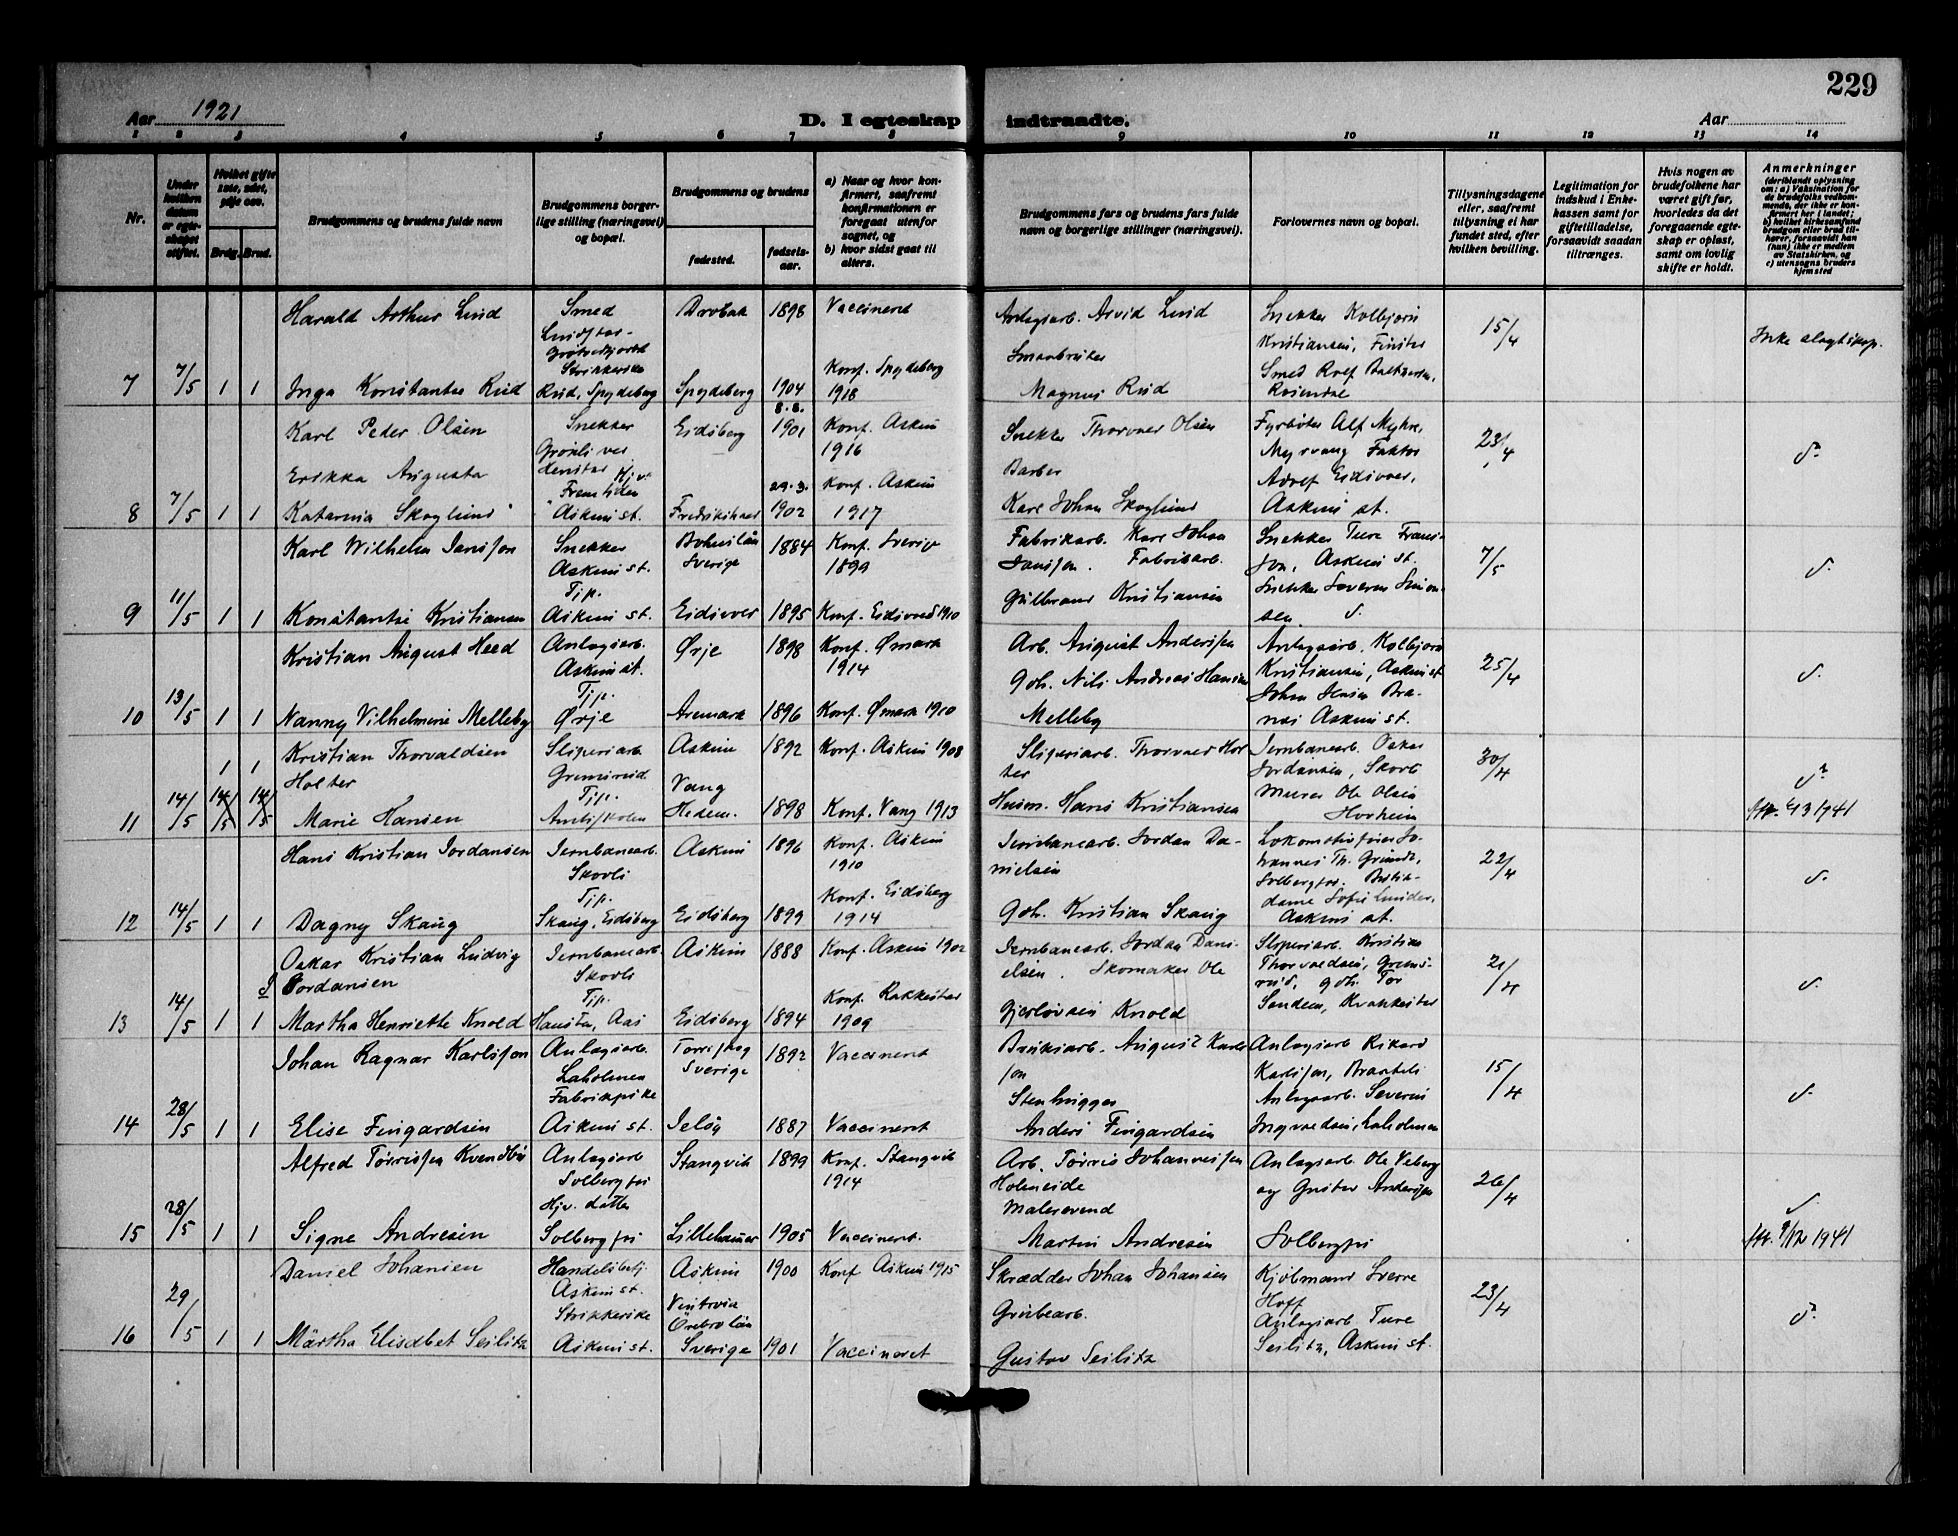 229
Aar 1921
D. I egteskap
indtraadte.
Aar
1 2 3 4 5 6 7 8 9 10 11 12 13 14
Nr.
Under hvilken datum er egteskapet stiftet.
Hvilket gifte 1ste, 2det, 3dje osv.
Brdg. Brud.
Brudgommens og brudens fulde navn
Brudgommens borgerlige stilling (næringsvei) og bopæl.
Brudgommens og brudens
fødested.
fødselsaar.
a) Naar og hvor konfirmert, saafremt konfirmationen er foregaat utenfor sognet, og
b) hvor sidst gaat til alters.
Brudgommens fars og brudens fars fulde navn og borgerlige stillinger (næringsvei).
Forlovernes navn og bopæl.
Tillysningsdagene eller, saafremt tillysning ei har fundet sted, efter hvilken bevilling.
Legitimation for indskud i Enkekassen samt for giftetilladelse, forsaavidt saadan tiltrænges.
Hvis nogen av brudefolkene har været gift før, hvorledes da det foregaaende egteskap er opløst, samt om lovlig skifte er holdt.
Anmerkninger
(deriblandt oplysning om: a) Vaksination for de brudefolks vedkommende, der ikke er konfirmert her i landet; b) hvilket kirkesamfund brudgom eller brud tilhører, forsaavidt han (hun) ikke er medlem av Statskirken, og c) utensogns bruders hjemsted
Harald Arthur Lund Smed Drøbak 1898 Vaccineret Anlægsarb. Arvid Lund Snekker Kolbjørn 15/4 Inke slegtskap.
Kristiansen, Finstad
Strikkerske
7 7/5 1 1 Inga Konstantse Rud Rud, Spydeberg Spydeberg 1904 Konf. Spydeberg 1918 Magnus Rud Smed Rolf
Rosendal
Karl Peder Olsen Snekker Eidsberg 8.8. 1901 Konf. Askim 1916 Snekker Thorvald Olsen Fyrbøter Alf Myhre, 23/4 d°
Myrvang Faktor
Erikka Augusta Barber Adolf Eidsvold,
8 7/5 1 1 Katarina Skoglund Askim st. Fredrikshald 29.3. 1902 Konf. Askim 1917 Karl Johan Skoglund Askim st.
Karl Wilhelm Jansson Snekker Bohuslän Sverige 1884 Konf. Sverige 1899 Fabrikarb. Karl Johan Jansson. Snekker Ture Fransson, Askim st. 7/5 d°
Askim st.
Tjp. Fabrikarb.
9 11/5 1 1 Konstantse Kristiansen Askim st. Eidsvold 1895 Konf. Eidsvold 1910 Gulbrand Kristiansen Snekker Severin Simonsen d°
Kristian August Heed Anlægsarb. Ørje 1898 Konf. Ømark 1914 Arb. August Anderssen Anlægsarb. Kolbjørn Kristiansen, Askim st. 25/4 d°
Askim st.
Tjp.
10 13/5 1 1 Nanny Vilhelmine Melleby Ørje Aremark 1896 Konf. Ømark 1910 Gbr. Nils Andreas Hansen Melleby Johan Jensen
Askim st.
Kristian Thorvaldsen Holter 1 1 Sliperiarb. Askim 1892 Konf. Askim 1908 Sliperiarb. Thorvald Holter Jernbanearb. Oskar Jordansen, Skorb 30/4 d°
Grimsrud
Tjp.
11 14/5 14/5 14/5 Marie Hansen Amtsskolen Vang Hedem. 1898 Konf. Vang 1913 Husm. Hans Kristiansen Murer Ole Olsen Hovheim 1941
Hans Kristian Jordansen Jernbanearb. Askim 1896 Konf. Askim 1910 Jernbanearb. Jordan Danielsen Lokomotivfører Johannes Th. Grundt, Solbergfos. 22/4 d°
Skovli
Tjp.
12 14/5 1 1 Dagny Skaug Skaug, Eidsberg Eidsberg 1899 Konf. Eidsberg 1914 Gbr. Kristian Skaug Sofie Lunder, Askim st.
Oskar Kristian Ludvig Jordansen Jernbanearb. Askim 1888 Konf. Askim 1902 Jernbanearb. Jordan Danielsen. Sliperiarb. Kristian Thorvaldsen, Grimsrud, 21/4 d°
Skovli
Tjp.
13 14/5 1 1 Martha Henriette Knold Aas Eidsberg 1894 Konf. Rakkestad 1909 Skomaker Ole Gjerløvsen Knold gbr. Tor Sandem, Krakkestad
Johan Ragnar Karlsson Anlægsarb. Torrskog Sverige 1892 Vaccineret Bruksarb. August Karlsson Anlægsarb Rikard Karlsson, 15/4 d°
Laholmen
Fabrikpike
14 28/5 1 1 Elise Fingardsen Askim st. Jeløy 1887 Vaccineret Stenhugger Anders Fingardsen Anlægsarb. Severin Ingvaldsen, Laholmen
Alfred Tørrissen Kvendbø Anlægsarb Solbergfos Stangvik 1899 Konf. Stangvik 1914 Arb. Tørris Johannessen Holmeide Anlægsarb. Ole Veberg og Gustav Anderssen 26/4 d°
Hjv. datter
15 28/5 1 1 Signe Andresen Solbergfos Lillehamer 1905 Vaccineret. Malersvend Martin Andresen Solbergfos 1941
Daniel Johansen Handelsbetj. Askim st. Askim 1900 Konf Askim 1915 Skrædder Johan Johansen Kjøbmand Sverre Hoff 23/4 d°
Strikkerske
16 29/5 1 1 Märtha Elisabet Seilitz Askim st. Örebro län Sverige 1901 Vaccineret Grubearb. Gustav Seilitz Anlægsarb Ture Seilitz, Askim st.